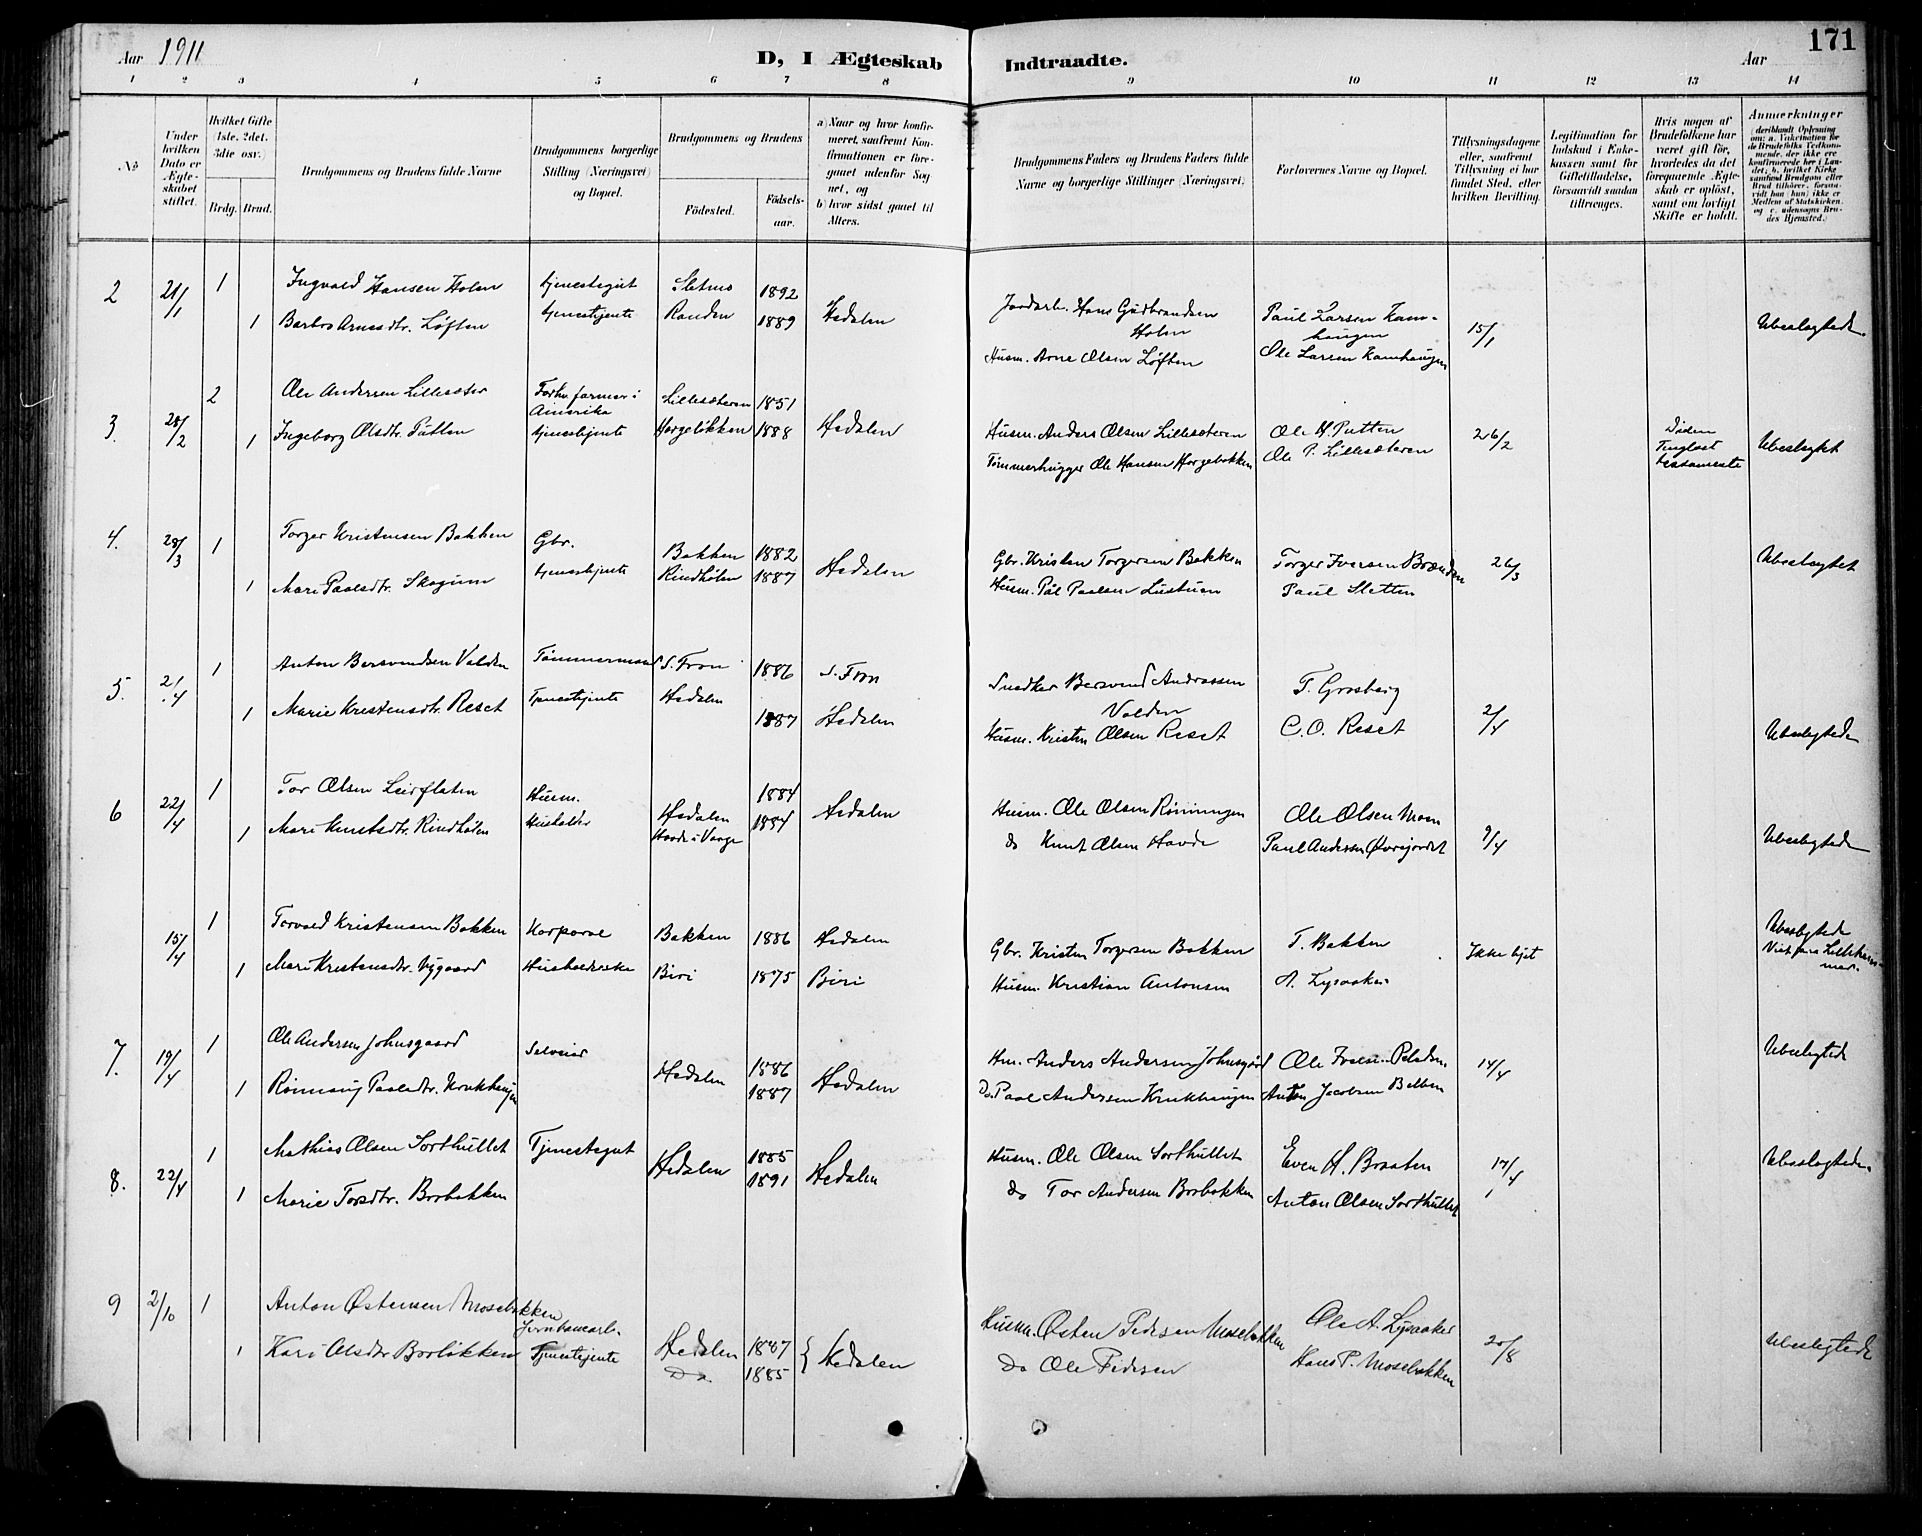 Aar 1911
D, I Ægteskab
Indtraadte.
Aar
171
1 2 3 4 5 6 7 8 9 10 11 12 13 14
No
Under hvilken Dato er Ægteskabet stiftet.
Hvilket Gifte (1ste, 2det, 3die osv.)
Brdg. Brud.
Brudgommens og Brudens fulde Navne
Brudgommens borgerlige Stilling (Næringsvei) og Bopæl.
Brudgommens og Brudens
Födested. Födselsaar.
a) Naar og hvor konfirmeret, saafremt Konfirmationen er foregaaet udenfor Sognet, og
b) hvor sidst gaaet til Alters.
Brudgommens Faders og Brudens Faders fulde Navne og borgerlige Stillinger (Næringsvei)
Forlovernes Navne og Bopæl.
Tillysningsdagene eller, saafremt Tillysning ei har fundet Sted, efter hvilken Bevilling.
Legitimation for Indskud i Enkekassen samt for Giftetilladelse, forsaavidt saadan tiltrænges.
Hvis nogen af Brudefolkene har været gift før, hvorledes da det foregaaende Ægteskab er oplöst, samt om lovligt Skifte er holdt.
Anmærkninger
2 21/1 1 Ingvald Hansen Holen tjenestegut Sletmo 1892
1 Barbro Arnesdtr. Løften tjenestjente Randen 1889 Hedalen
Jordarb. Hans Gudbrandsen Holen
Husm. Arne Olsen Løften
Paul Larsen Kamhaugen
Ole Larsen Kamhaugen
15/1
Ubeslegtede.
3. 28/2 2 Ole Andersen Lillesæter Forhv. farmer i Amerika Lillesæteren 1851
1 Ingeborg Olsdtr. Putten tjenestjente Horgeløkken 1888 Hedalen
Husm. Anders Olsen Lillesæteren
Tømmerhugger Ole Hansen Horgebakken
Ole H. Putten
Ole P. Lillesæteren
26/2
Døden
Tinglæst testamente
Ubeslegtet
4. 28/3 1 Torger Kristensen Bakken Gbr. Bakken 1882
1 Mari Paalsdtr. Skogum tjenestjente Rindhølen 1887 Hedalen
Gbr. Kristen Torgersen Bakken
Husm. Pål Paalsen Lustuen
Torger Iversen Brænden
Paul Sletten
26/3
Ubeslegtet
5. 21/4 1 Anton Bersvendsen Volden Tømmermand S. Fron 1886 S. Fron
1 Marie Kristensdtr. Reset Tjenestejente Hedalen 1887 Hedalen
Snedker Bersvend Andreassen Volden
Husm. Kristen Olsen Reset
T. Grosberg
C. O. Reset
2/4
Ubeslegtede
6 22/4 1 Tor Olsen Leirflaten Husm. Hedalen 1884 Hedalen
1 Mari Knutsdtr. Rindhølen Husholder Havde i Vaage 1884
Husm. Ole Olsen Rønningen
do Knut Olsen Havde
Ole Olsen Moen
Paul Andersen Øvrejordet
9/4
Ubeslegtede
15/4 1 Torvald Kristensen Bakken Korporal Bakken 1886 Hedalen
1 Mari Kristensdtr. Nygaard Husholderske Biri 1875 Biri
Gbr. Kristen Torgersen Bakken
Husm. Kristian Antonsen
T. Bakken
A. Lysaaker
Ikke lyst
Ubeslegtede
Viet paa Lillehammer.
7. 19/4 1 Ole Andersen Johnsgaard Selveier
1 Rønnaug Paalsdtr. Krukhaugen Hedalen 1886 1887 Hedalen
Hm. Anders Andersen Johnsgård
Do. Paal Andersen Krukhaugen
Ole Iversen
Anton Jacobsen
14/4
Ubeslegtede
8. 22/4 1 Mathias Olsen Sorthullet Tjenestegut Hedalen 1885 Hedalen
1 Marie Torsdtr. Borbakken 1891
Husm. Ole Olsen Sorthullet
do Tor Andersen Borbakken
Even H. Braaten
Anton Olsen Sorthullet
17/4
Ubeslegtede.
9 2/10 1 Anton Østensen Mosebakken Jernbanearb.
1 Kari Olsdtr Borløkken Tjenestejente Hedalen 1887 Hedalen
Do. 1885
Husm. Østen Pedersen Mosebakken
do Ole Pedersen
Ole A. Lysaaker
Hans P. Mosebakken
20/8
Ubeslegtede